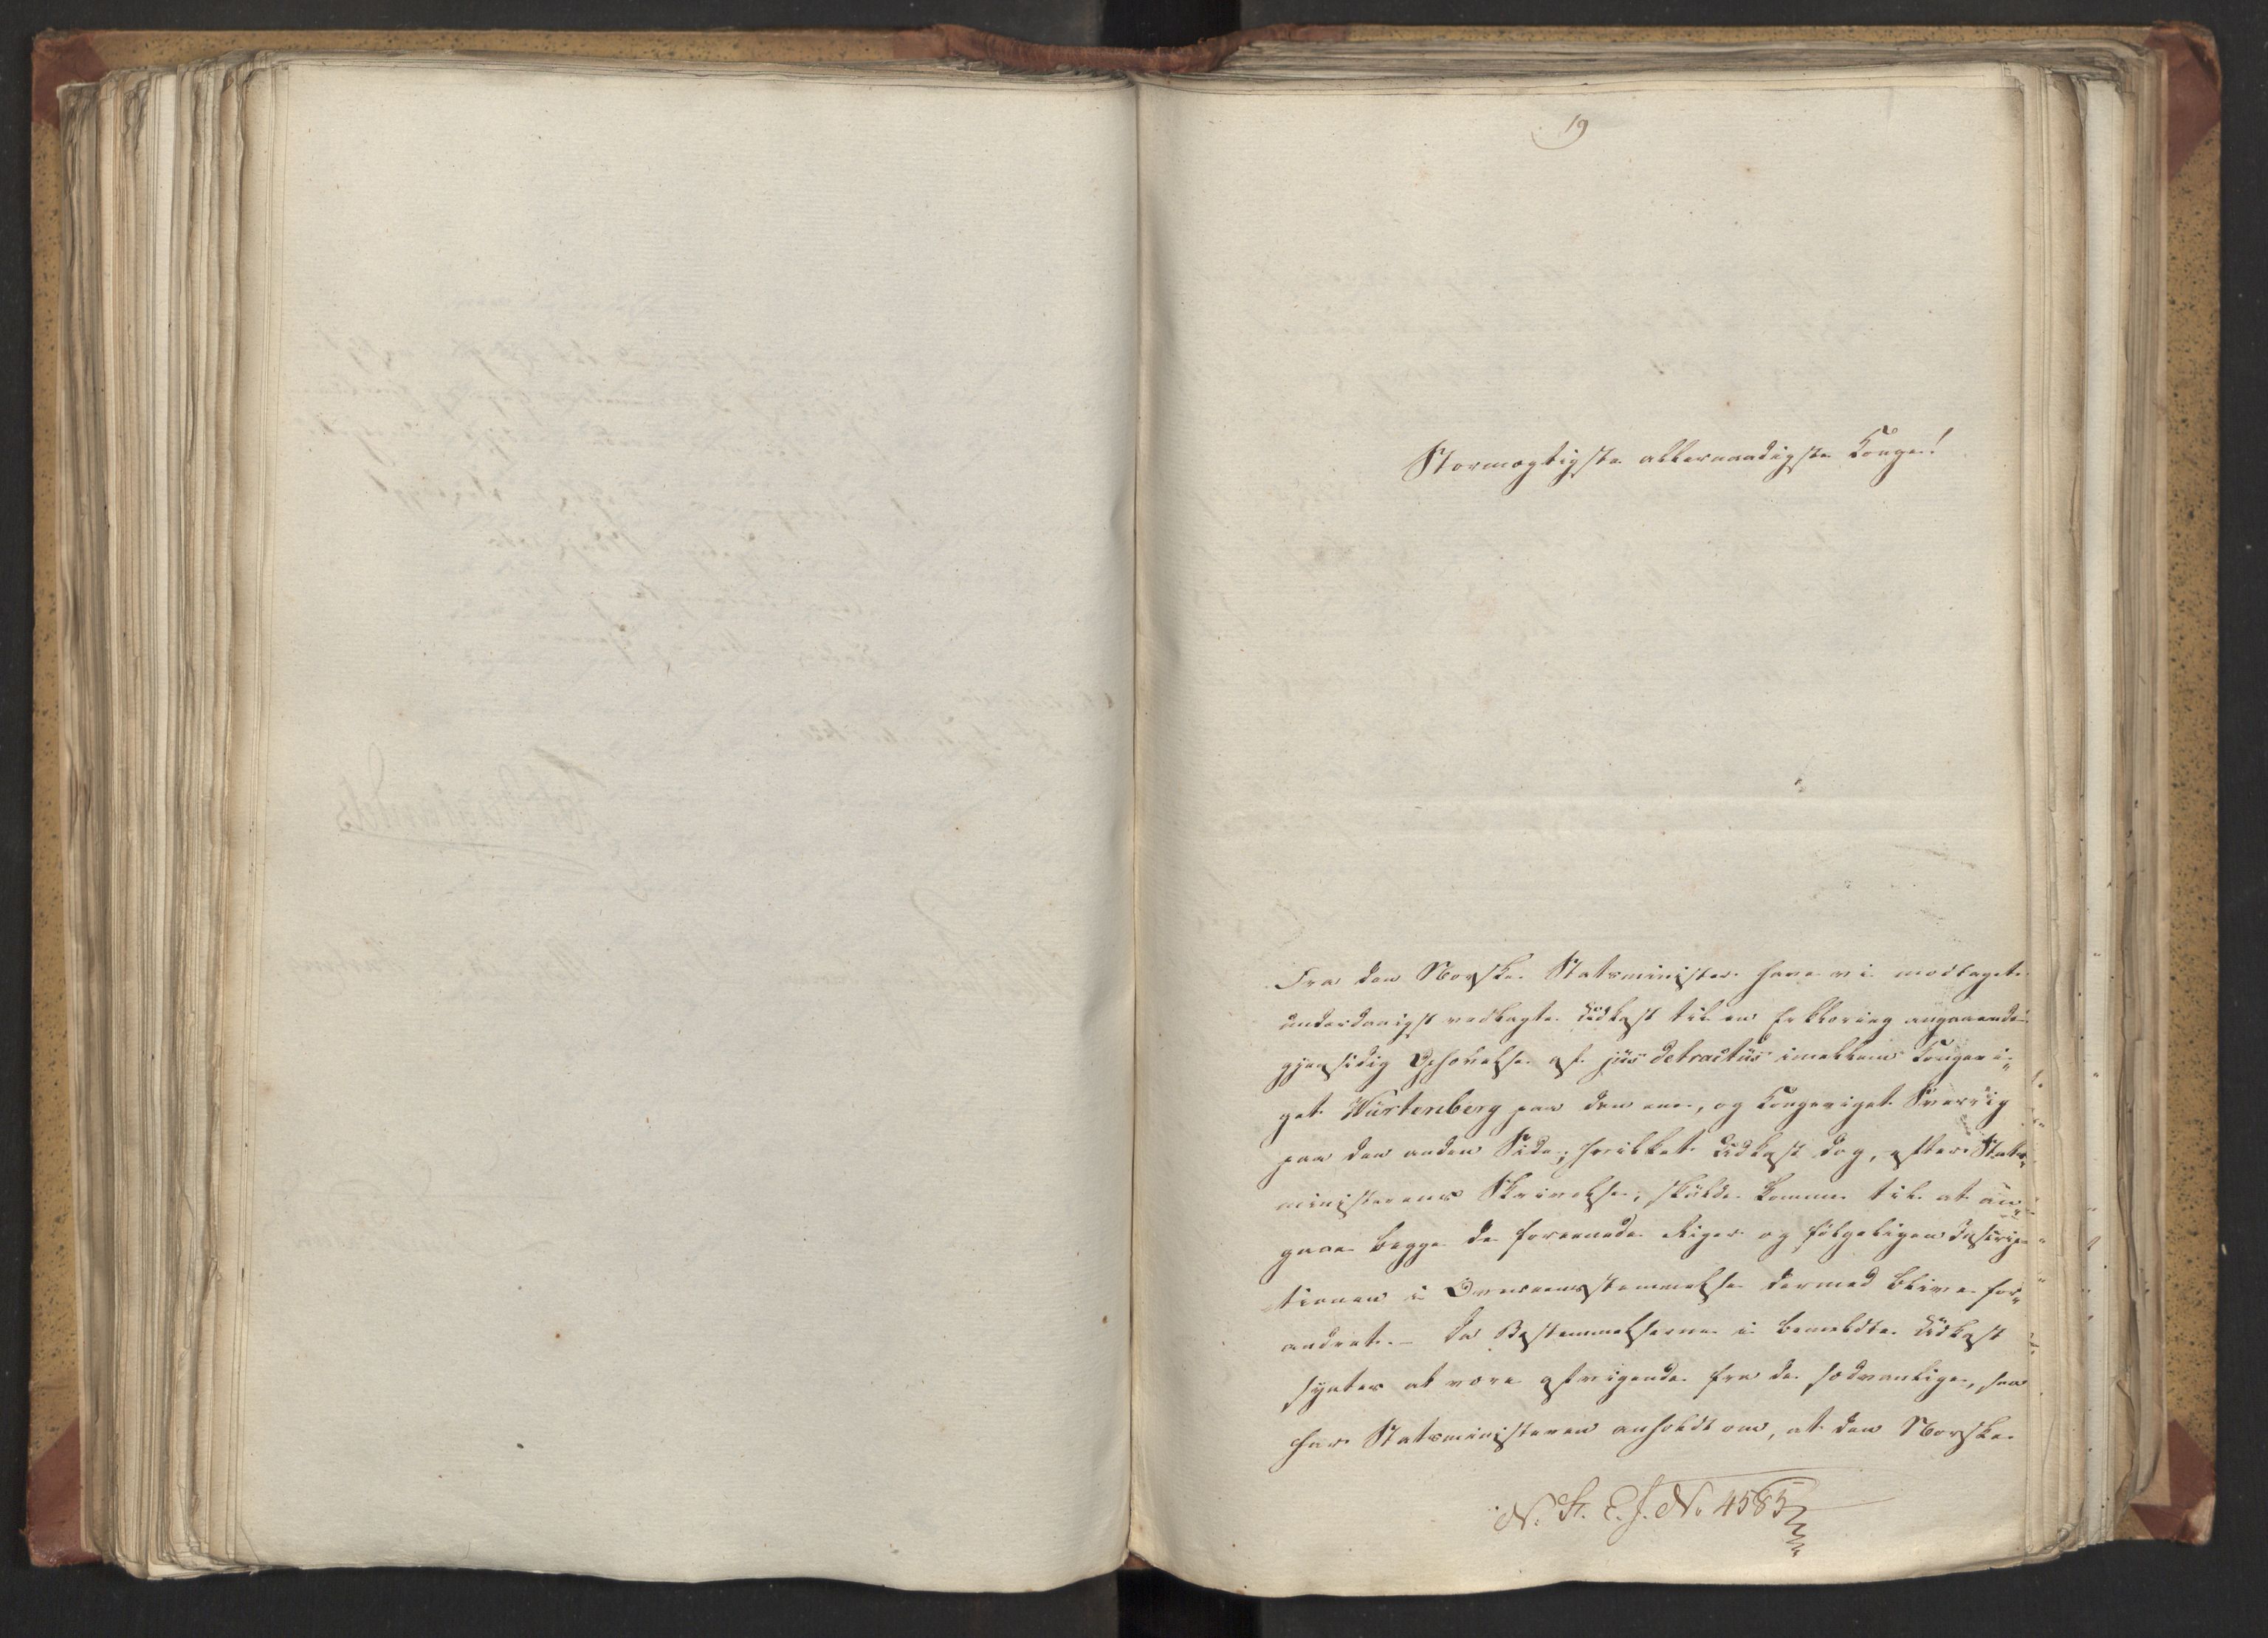 19
Stormægtigste allernaadigste Konge!
Fra den Norske Statsminister have vi modtaget
underdanigst vedlagte Udkast til en Erklæring angaaende
gjensidig Ophævelse af jus detractus imellem Kongeri„
get Würtenberg paa den ene, og Kongeriget Sverrig
paa den anden Side; hvilket Udkast dog, efter Stats„
ministerens Skrivelse, skulde komme til at an„
gaae begge de forenede Riger og følgeligen Inscrip„
tionen i Overeensstemmelse dermed blive for„
andret. – Da Bestemmelserne i bemeldte Udkast
synes at være afvigende fra de sædvanlige, saa
har Statsministeren anholdt om, at den Norske
N. St. E. J. No 4585